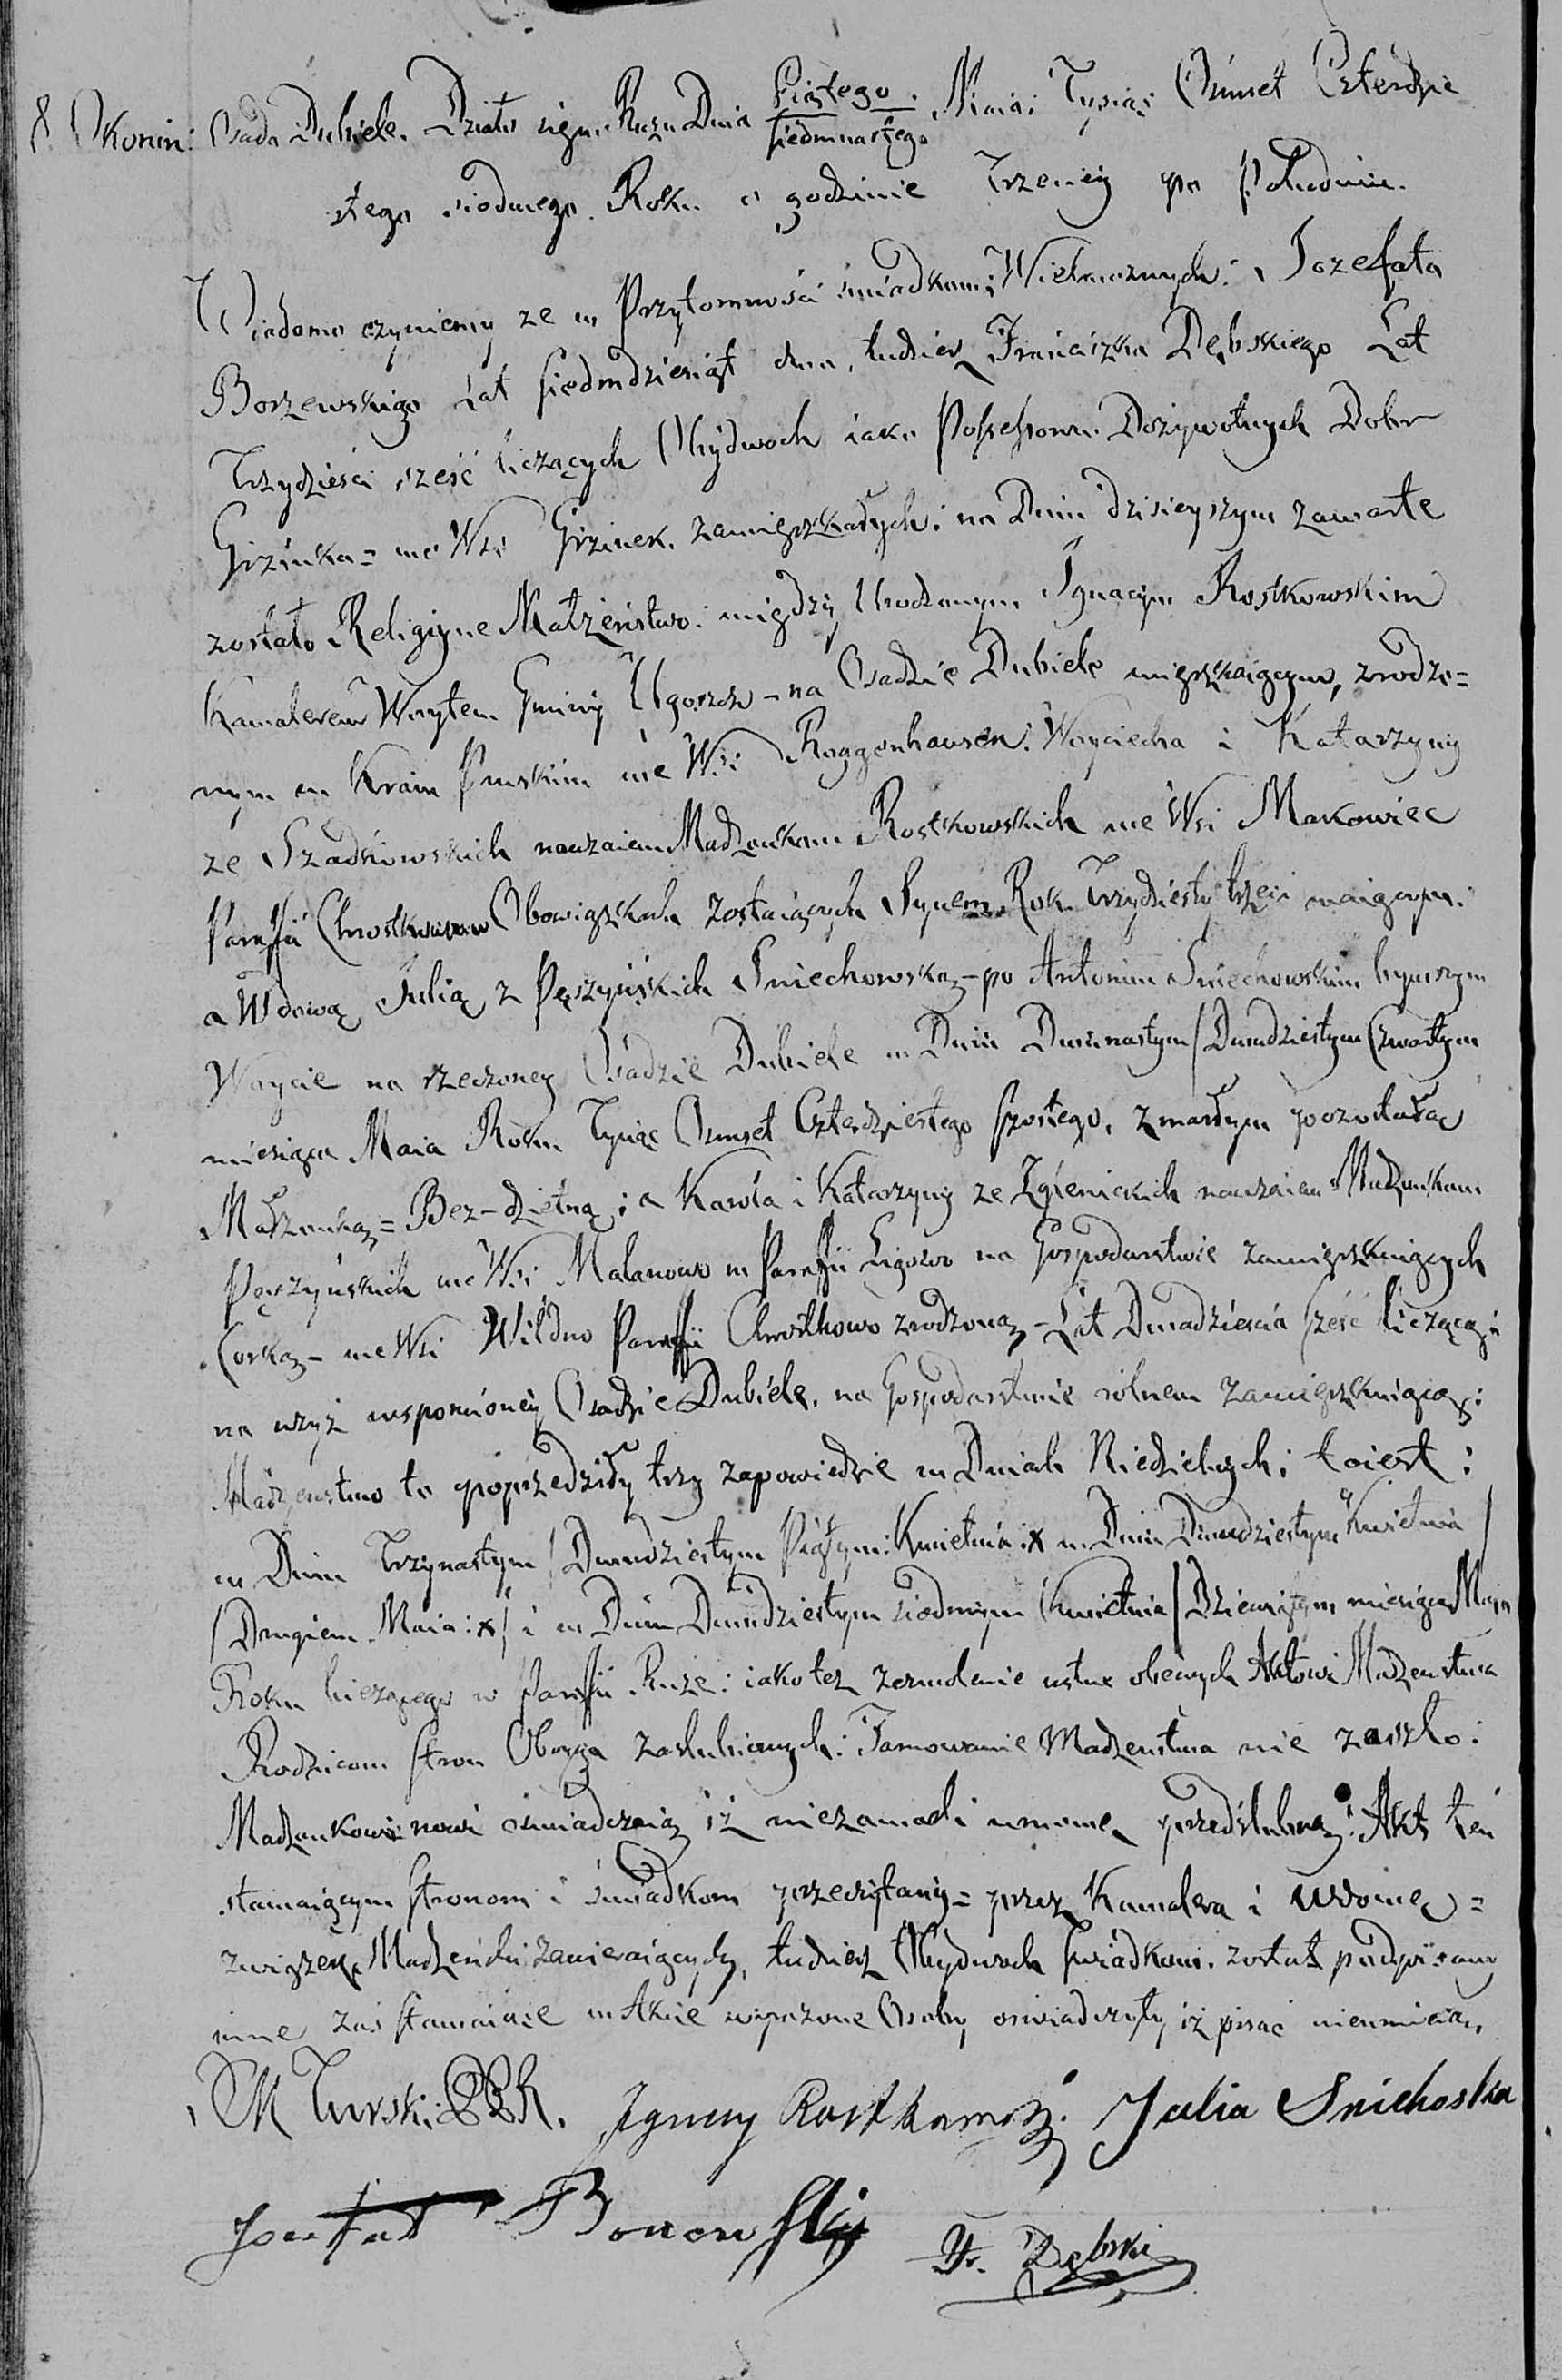 8. Okonin: Osada Dubiele. Działo się w Rużu Dnia Piątego / siedmnastego Maia: Tysiąc Ośmset Czterdzie
stego siodmego Roku o godzinie Trzeciey po Południu.
Wiadomo czyniemy ze w Przytomności świadkow; Wielmoznych: Jozefata
Borzewskiego Lat siedmdziesiąt dwa, tudzież Franciszka Dębskiego Lat
Trzydzieści sześć liczących Obydwoch iako Possessorow Dożywotnych Dobr
Giżinka = we Wsi Giżinek. zamięszkałych: na Dniu dzisieyszym zawarte
zostało Religiyne Małżeństwo: między Urodzonym Ignacym Rostkowskim
Kawalerem Woytem Gminy Ugoszcz – na Osadzie Dubiele mięszkaiącym, zrodzo=
nym w Kraiu Pruskim we Wsi Roggenhausen: Woyciecha i Katarzyny
ze Szadkowskich naówczas Małżonkow Rostkowskich we Wsi Makowiec
Paraffii Chrostkowo w Obowiązkach zostaiących Synem, Rok Trzydziesty trzeci maiącym:
a Wdową Julią z Pęszyńskich Sniechowską – po Antonim Sniechowskim bywszym
Woycie na rzeczoney Osadzie Dubiele w Dniu Dwunastym / Dwudziestym Czwartym
miesiąca Maia Roku Tysiąc Ośmset Czterdziestego szostego, zmarłym pozostałą
Małżonką = Bez-dzietną; a Karola i Katarzyny ze Zglenickich Małżonkow
Pęszyńskich we Wsi Malanowo w Paraffii Ligowo na Gospodarstwie zamięszkuiących
Corką – we Wsi Wildno Paraffii Chrostkowo zrodzoną – Lat Dwadzieścia sześć liczącą:
na wzyż wspomioney Osadzie Dubiele, na Gospodarstwie rolnem zamięszkuiącą:
Małżenstwo to poprzedziły trzy zapowiedzie w Dniach Niedzielnych; to iest:
w Dniu Trzynastym / Dwudziestym Piątym: Kwietnia: x w Dniu Dwudziestym Kwietnia /
/ Drugiem Maia: x / i w Dniu Dwudziestym siodmym Kwietnia / Dziewiątym miesiąca Maja
Roku bieżącego w Paraffii Ruże: iako też zezwolenie ustne obecnych Aktowi Małżenstwa
Rodzicow stron Oboyga zaslubionych: Tamowanie Małżenstwa nie zaszło:
Małżonkowie nowi oświadczaią iż niezawarli umowę przedślubną: Akt ten
stawaiącym stronom i świadkom przeczytany = przez Kawalera i Wdowę =
związek Małżeński zawieraiących, tudzież Obydwoch świadkow. został podpisany
inne zaś stawaiące w Akcie wyrażone Osoby, oświadczyły iż pisać nieumieią.
M Turski Ignacy Rostkowski. Julia Snichoska
Jozefat Borzewski Fr. Dębski